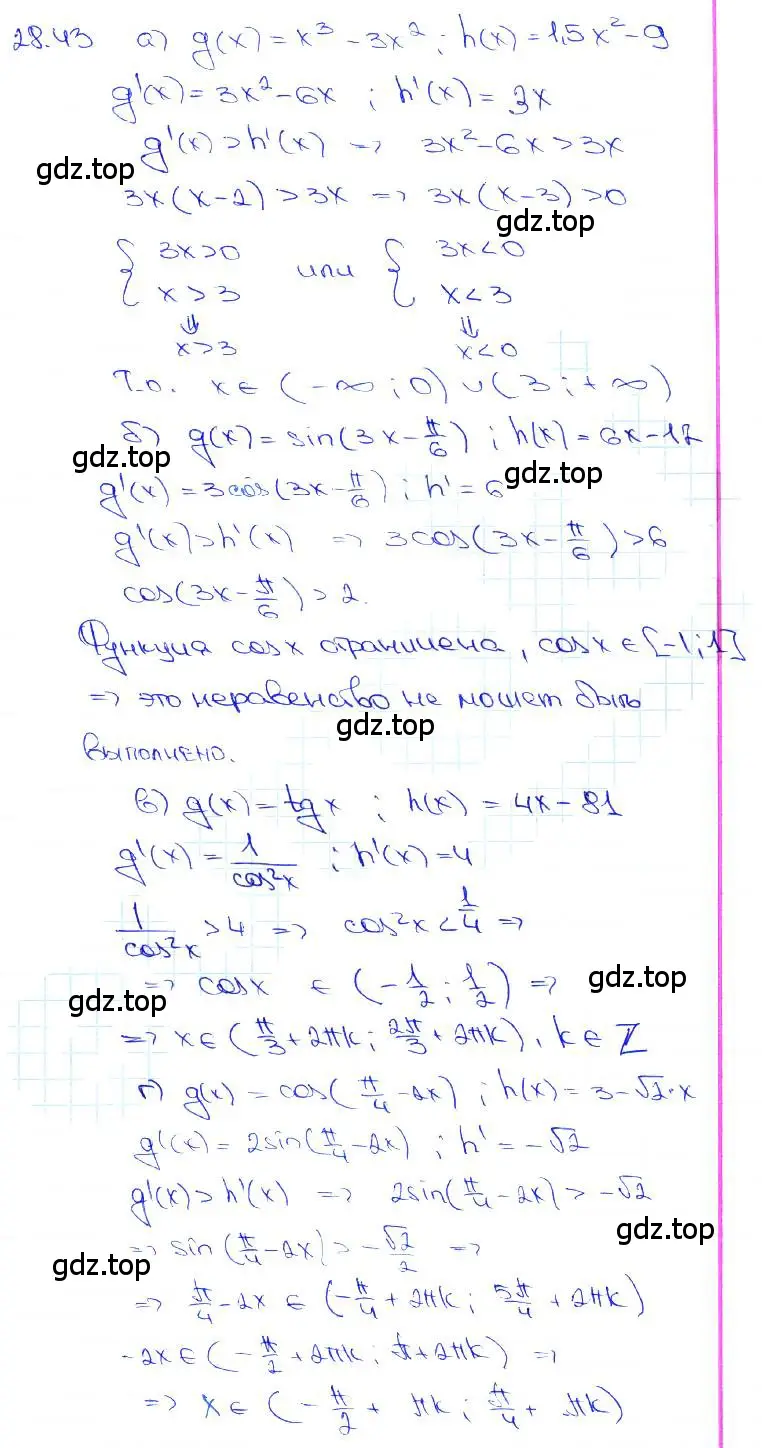 28.43 а) g(x) = x³ - 3x² ; h(x) = 1,5x² - 9
g'(x) = 3x² - 6x ; h'(x) = 3x
g'(x) > h'(x) => 3x² - 6x > 3x
gdz.top
3x(x-2) > 3x => 3x(x-3) > 0
gdz.top
{ 3x>0 или { 3x<0
x>3 x<3
⇓ ⇓
x>3 x<0
Т.о. x ∈ (-∞; 0) ∪ (3; +∞)
б) g(x) = sin(3x - π/6) ; h(x) = 6x - 12
gdz.top gdz.top
g'(x) = 3cos(3x - π/6) ; h' = 6
g'(x) > h'(x) => 3cos(3x - π/6) > 6
cos(3x - π/6) > 2.
Функция cosx ограничена, cosx ∈ [-1; 1]
=> это неравенство не может быть
gdz.top
выполнено.
в) g(x) = tgx ; h(x) = 4x - 81
g'(x) = 1/cos²x ; h'(x) = 4
1/cos²x > 4 => cos²x < 1/4 =>
=> cosx ∈ (-1/2; 1/2) =>
gdz.top gdz.top
=> x ∈ (π/3 + 2πk; 2π/3 + 2πk), k ∈ Z
г) g(x) = cos(π/4 - 2x) ; h(x) = 3 - √2·x
g'(x) = 2sin(π/4 - 2x) ; h' = -√2
g'(x) > h'(x) => 2sin(π/4 - 2x) > -√2
gdz.top
=> sin(π/4 - 2x) > -√2/2 =>
gdz.top
=> π/4 - 2x ∈ (-π/4 + 2πk; 5π/4 + 2πk)
-2x ∈ (-π/2 + 2πk; π + 2πk) =>
=> x ∈ (-π/2 + πk; π/4 + πk)